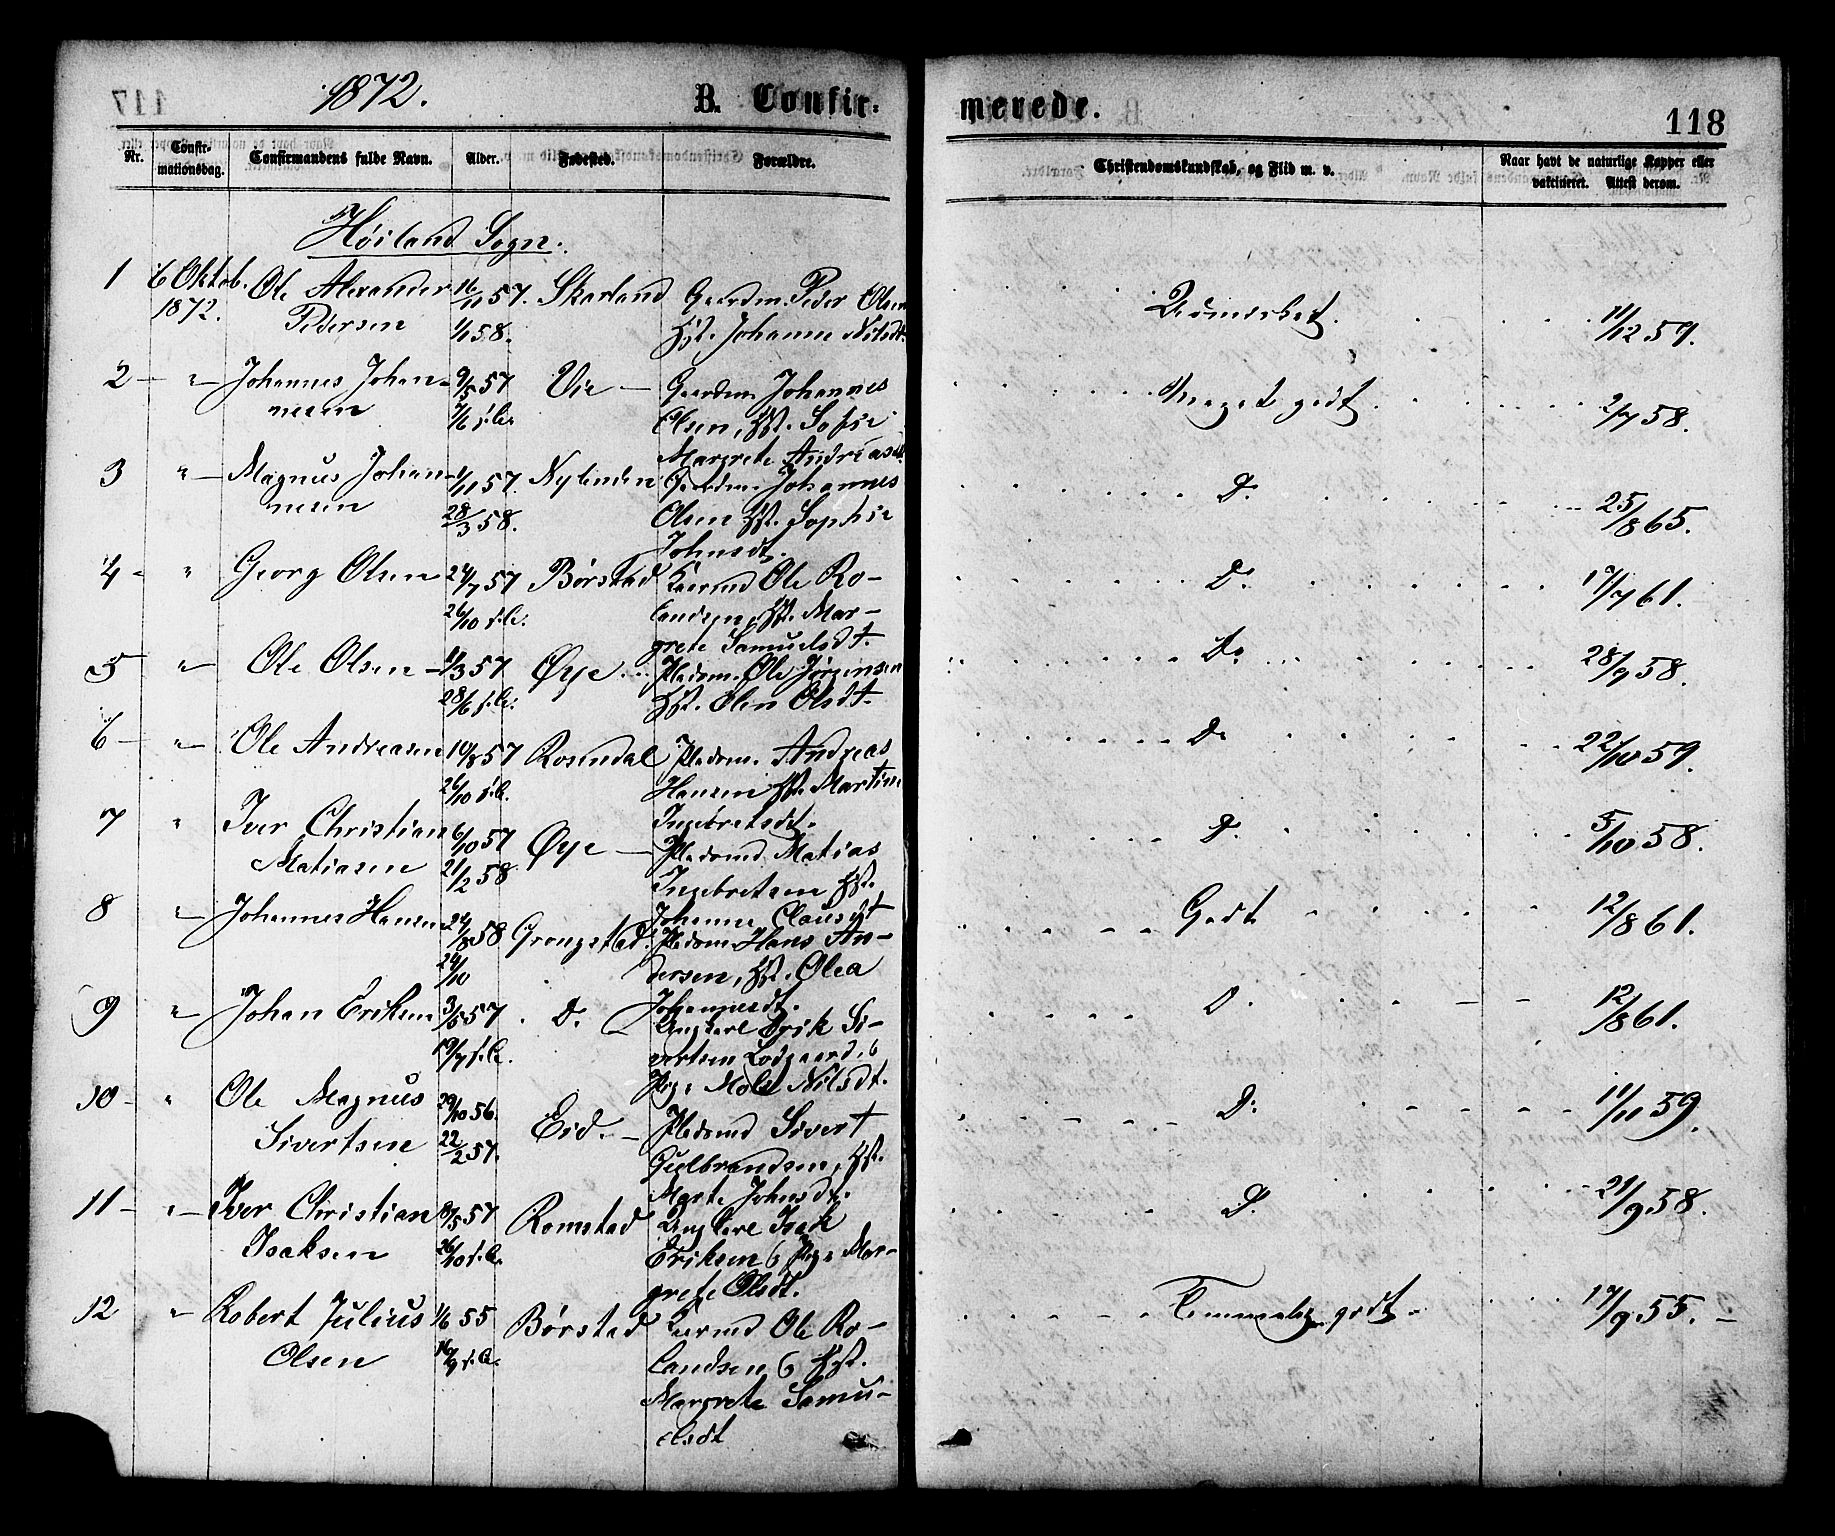 1872.
B. Confir-
merede.
118
Nr.
Confir-
mationsdag.
Confirmandens fulde Navn.
Alder.
Fødested.
Forældre.
Christendomskundskab, og Flid m. v.
Naar havt de naturlige Kopper eller
vaktineret. Attest derom.
Høiland Sogn.
1 6 Oktob. Ole Alexander 16/11 57. Skarland Gaardm. Peder Olsen
1872. Pedersen 1/1 58. Hst. Johanne Nilsdt.
11/12 59.
2 — " — Johannes Johan- 9/5 57 Vie — Gaardm. Johannes
nesen 7/6 s. A. Olsen, Hst. Sofie
Margrete Andreasdt.
Meget godt. 2/7 58.
3 " — Magnus Johan- 1/11 57. Nylenden Gaardm. Johannes
nesen 28/3 58. Olsen Hst. Sophie
Johnsdt.
D. 25/8 65.
4 - " Georg Olsen 24/7 57 Børstad Ole Ro-
26/10 s. A. landsen, Hst. Mar-
grete Samuelsdt.
D. 17/7 61.
5 " — Ole Olsen — 11/3 57 Øye Pladsm. Ole Jørgensen
28/6 s. A. Hst. Olsdt.
D. 28/9 58.
6 — " — Ole Andreasen 10/8 57 Rosendal Pladsm. Andreas
26/10 s. A. Hansen Hst. Martine
Ingebretsdt.
D. 22/10 59.
7 " Iver Christian 6/10 57 Øye — Pladsmd Matias
Matiasen 21/2 58 Ingebretsen Hst.
Johanne Clausdt
D. 5/10 58.
8 " — Johannes Hansen 24/8 58 Grongstad. Pladsm. Hans An-
24/10 dersen, Hst. Olea
Johannesdt.
Godt 12/8 61.
9 " — Johan Eriksen 3/5 57 D. Ungkarl Erik Si-
19/7 s. A. vertsen Lodgaard, &
Pige Nilsdt.
D. 12/8 61.
10 - " Ole Magnus 29/10 56. Eid. — Pladsmd Sivert
Sivertsen 22/2 57. Gulbrandsen, Hst.
Marte Johnsdt.
D. 11/11 59.
11 - " — Iver Christian 8/5 57 Romstad Ungkarl Isak
Isaksen 26/10 s. A. Eriksen & Pige Mar-
grete Olsdt.
D. 21/9 58.
12 " — Robert Julius 1/6 55 Børstad Ole Ro-
Olsen 16/9 s. A. landsen & Hst.
Margrete Samu-
elsdt
Temmelig godt 17/9 55. —